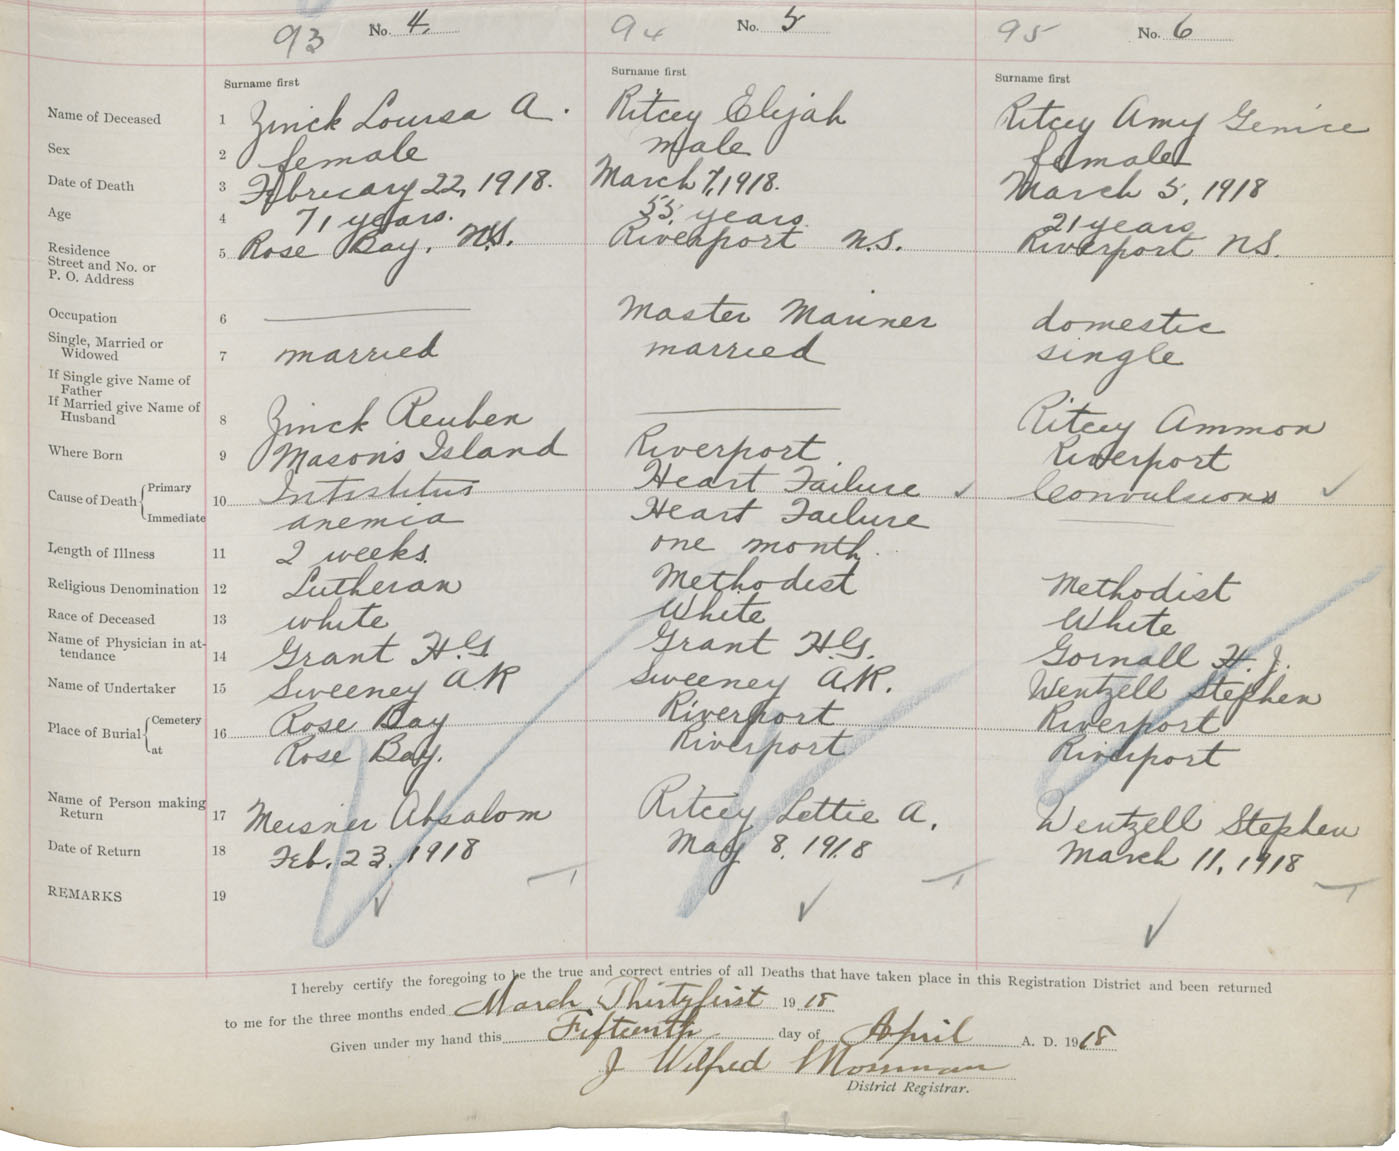 93 No. 4. 94 No. 5 95 No. 6
Surname first Surname first Surname first
Name of Deceased 1 Zinck Louisa A. Ritcey Elijah Ritcey Amy Genice
Sex 2 female male female
Date of Death 3 February 22, 1918. March 7, 1918. March 5, 1918
Age 4 71 years. 55 years. 21 years
Residence
Street and No. or
P. O. Address 5 Rose Bay, N.S. Riverport N.S. Riverport NS.
Occupation 6 Master Mariner domestic
Single, Married or
Widowed 7 married married single
If Single give Name of
Father
If Married give Name of
Husband 8 Zinck Reuben Ritcey Ammon
Where Born 9 Mason's Island Riverport. Riverport
Cause of Death Primary 10 Heart Failure Convulsions
Immediate anemia Heart Failure
Length of Illness 11 2 weeks. one month.
Religious Denomination 12 Lutheran Methodist Methodist
Race of Deceased 13 white White White
Name of Physician in at-
tendance 14 Grant H.G. Grant H.G. Gornall H. J.
Name of Undertaker 15 Sweeney A R Sweeney A.R. Wentzell Stephen
Place of Burial Cemetery 16 Rose Bay Riverport Riverport
at Rose Bay. Riverport Riverport
Name of Person making
Return 17 Meisner Absalom Ritcey Lettie A. Wentzell Stephen
Date of Return 18 Feb. 23, 1918 May 8, 1918 March 11, 1918
REMARKS 19
I hereby certify the foregoing to be the true and correct entries of all Deaths that have taken place in this Registration District and been returned
to me for the three months ended March Thirtyfirst 19 18
Given under my hand this Fifteenth day of April A. D. 19 18
J Wilfred Mossman
District Registrar.